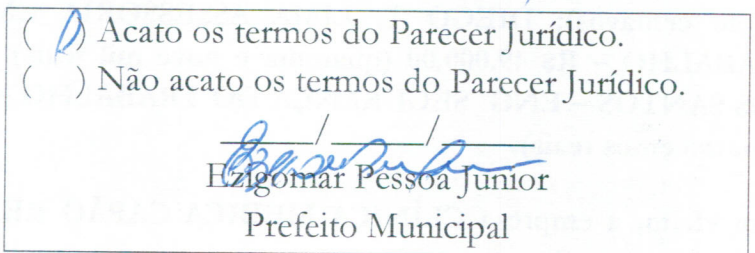 ( ) Acato os termos do Parecer Jurídico.
( ) Não acato os termos do Parecer Jurídico.
____/____/____
Ezigomar Pessoa Junior
Prefeito Municipal